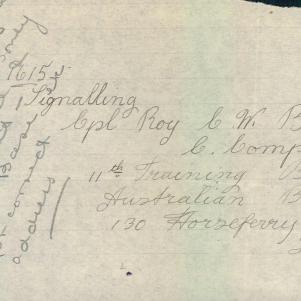 1615
Signalling
Cpl Roy C W B
C. Comp
11th Training
Australian
130 Horseferry
money
Base
correct
address